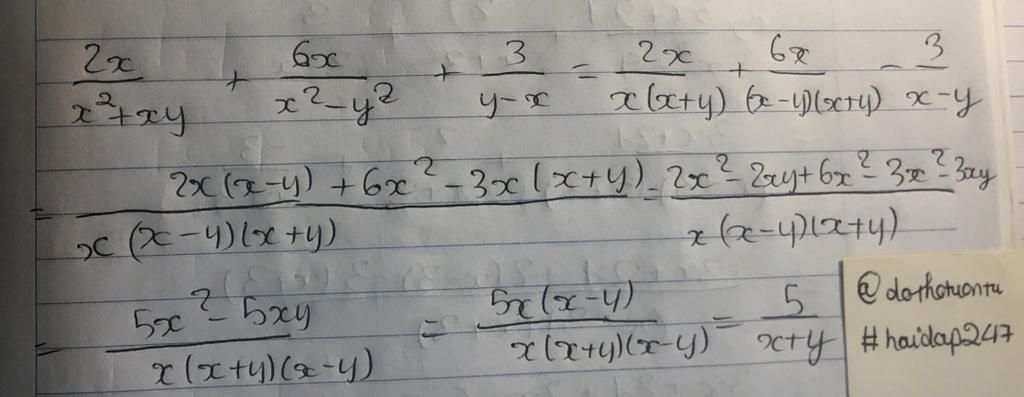 2x/(x²+xy) + 6x/(x²-y²) + 3/(y-x) = 2x/(x(x+y)) + 6x/((x-y)(x+y)) - 3/(x-y)
= (2x(x-y) + 6x² - 3x(x+y))/(x(x-y)(x+y)) = (2x²-2xy+6x²-3x²-3xy)/(x(x-y)(x+y))
= (5x²-5xy)/(x(x+y)(x-y)) = (5x(x-y))/(x(x+y)(x-y)) = 5/(x+y)
@dothotuantu
#haidap247